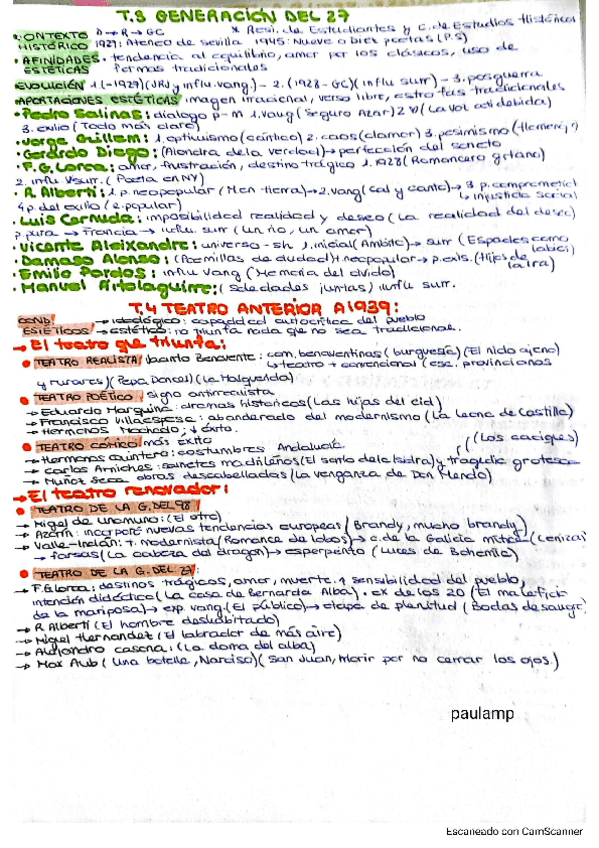 T.3 GENERACIÓN DEL 27
• CONTEXTO D → R → GC * Resi. de Estudiantes y C. de Estudios Históricos
HISTÓRICO 1927: Ateneo de sevilla 1945: Nueve o diez poetas (P.S)
• AFINIDADES • tendencia al equilibrio, amor por los clásicos, uso de
ESTÉTICAS formas tradicionales
EVOLUCIÓN 1.(-1929)(JRJ y influ.vang.) - 2. (1928-GC)(influ surr) - 3. posguerra
APORTACIONES ESTÉTICAS imagen irracional, verso libre, estrofas tradicionales
• Pedro Salinas: dialogo p-m 1. vang (Seguro Azar) 2 (La voz a ti debida)
3. exilio (Todo más claro)
• Jorge Guillem: 1. optimismo (cántico) 2. caos (clamor) 3. pesimismo (Homenj.)
• Gerardo Diego: (Alondra de la verdad) → perfección del soneto
• F.G. Lorca: amor, frustración, destino trágico 1. 1928 (Romancero gitano)
2. influ surr. (Poeta en NY)
• R. Alberti: 1. p. neopopular (M en tierra) → 2. vang (cal y canto) → 3 p. comprometid
4 p. del exilio (e. popular) ↳ injusticia social
• Luis Cernuda: imposibilidad realidad y deseo (La realidad del deseo)
p. pura → Francia → influ. surr (Un río, un amor)
• Vicente Aleixandre: universo-sh 1. inicial (Ambito) → surr (Espadas como
labios)
• Damaso Alonso: (Poemillas de ciudad) + neopopular → p. exis. (Hijos de
la ira)
• Emilio Pardos: influ vang (Memoria del olvido)
• Manuel Artolaguirre: (soledades juntas) influ surr.
T.4 TEATRO ANTERIOR A 1939:
COND. → ideológico: capacidad autocrítica del pueblo
ESTÉTICOS → estético: no triunfa nada que no sea tradicional.
→ El teatro que triunfa:
• TEATRO REALISTA Jacinto Benavente: com. benaventinas (burguesía) (El nido ajeno)
↳ teatro + convencional (esc. provincianos
y rurares) (Pepa Doncel) (La Malquerida)
• TEATRO POÉTICO, signo antirrealista
→ Eduardo Marquina: dramas historicos (Las hijas del cid)
→ Francisco Villaespesa: abanderado del modernismo (La Leona de Castilla)
→ Hermanos Machado: ↓ éxito.
• TEATRO CÓMICO más éxito (Los caciques)
→ Hermanos Quintero: costumbres Andalucía
→ Carlos Arniches: sainetes madrileños (El santo de la Isidra) y tragedia grotesca
→ Muñoz Seca obras descabelladas (La venganza de Don Mendo)
→ El teatro renovador:
• TEATRO DE LA G. DEL 98
→ Migel de unamuno: (El otro)
→ Azorín: incorporó nuevas tendencias europeas (Brandy, mucho brandy)
→ Valle-Inclán: t. modernista (Romance de lobos) → c. de la Galicia mítica (Cenizas)
→ farsas (La cabeza del dragon) → esperpento (Luces de Bohemia)
• TEATRO DE LA G. DEL 27:
→ F.G. Lorca: destinos trágicos, amor, muerte. ↑ sensibilidad del pueblo,
intención didáctica (La casa de Bernarda Alba). • ex de los 20 (El malefici
de la mariposa) → exp. vang. (El público) → etapa de plenitud (Bodas de sangre)
→ R. Alberti (El hombre deshabitado)
→ Migel Hernandez (El labrador de más aire)
→ Alejandro casona: (La dama del alba)
→ Max Aub (Una botella, Narciso) (San Juan, Morir por no cerrar los ojos.)
paulamp
Escaneado con CamScanner